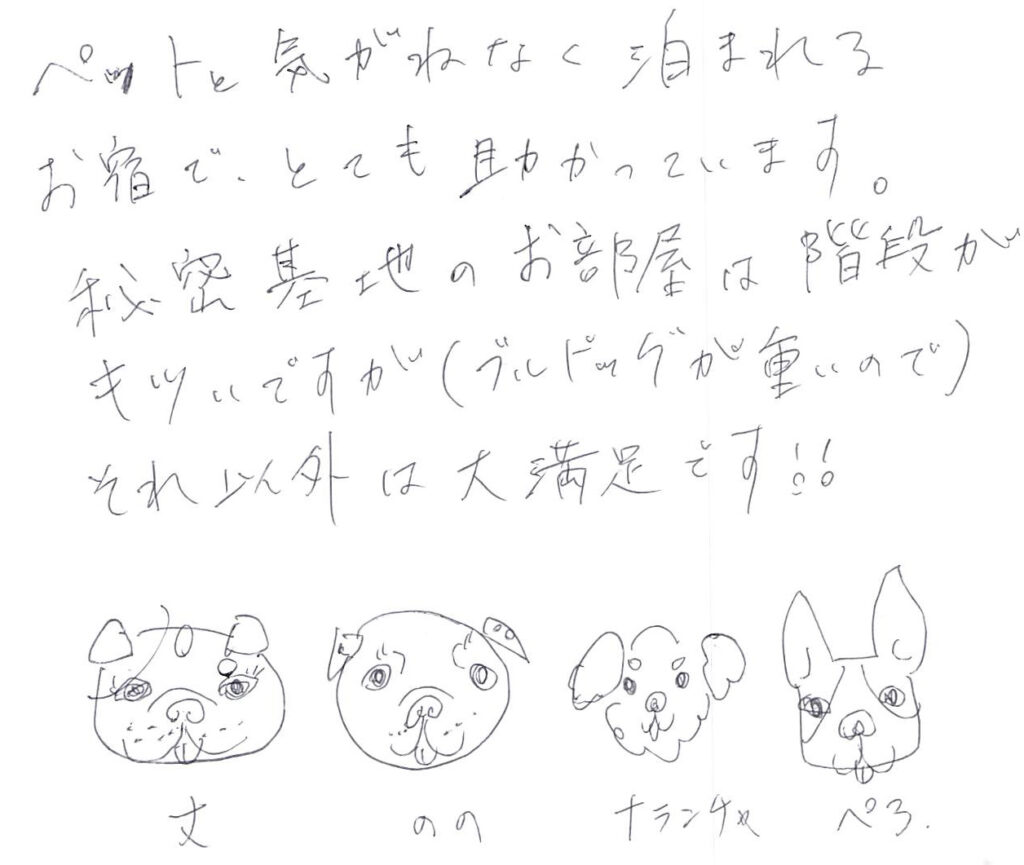 ペットと気がねなく泊まれる
お宿で、とても助かっています。
秘密基地のお部屋は階段が
キツいですが(ブルドッグが重いので)
それ以外は大満足です!!
丈 のの ナランチャ ぺろ.